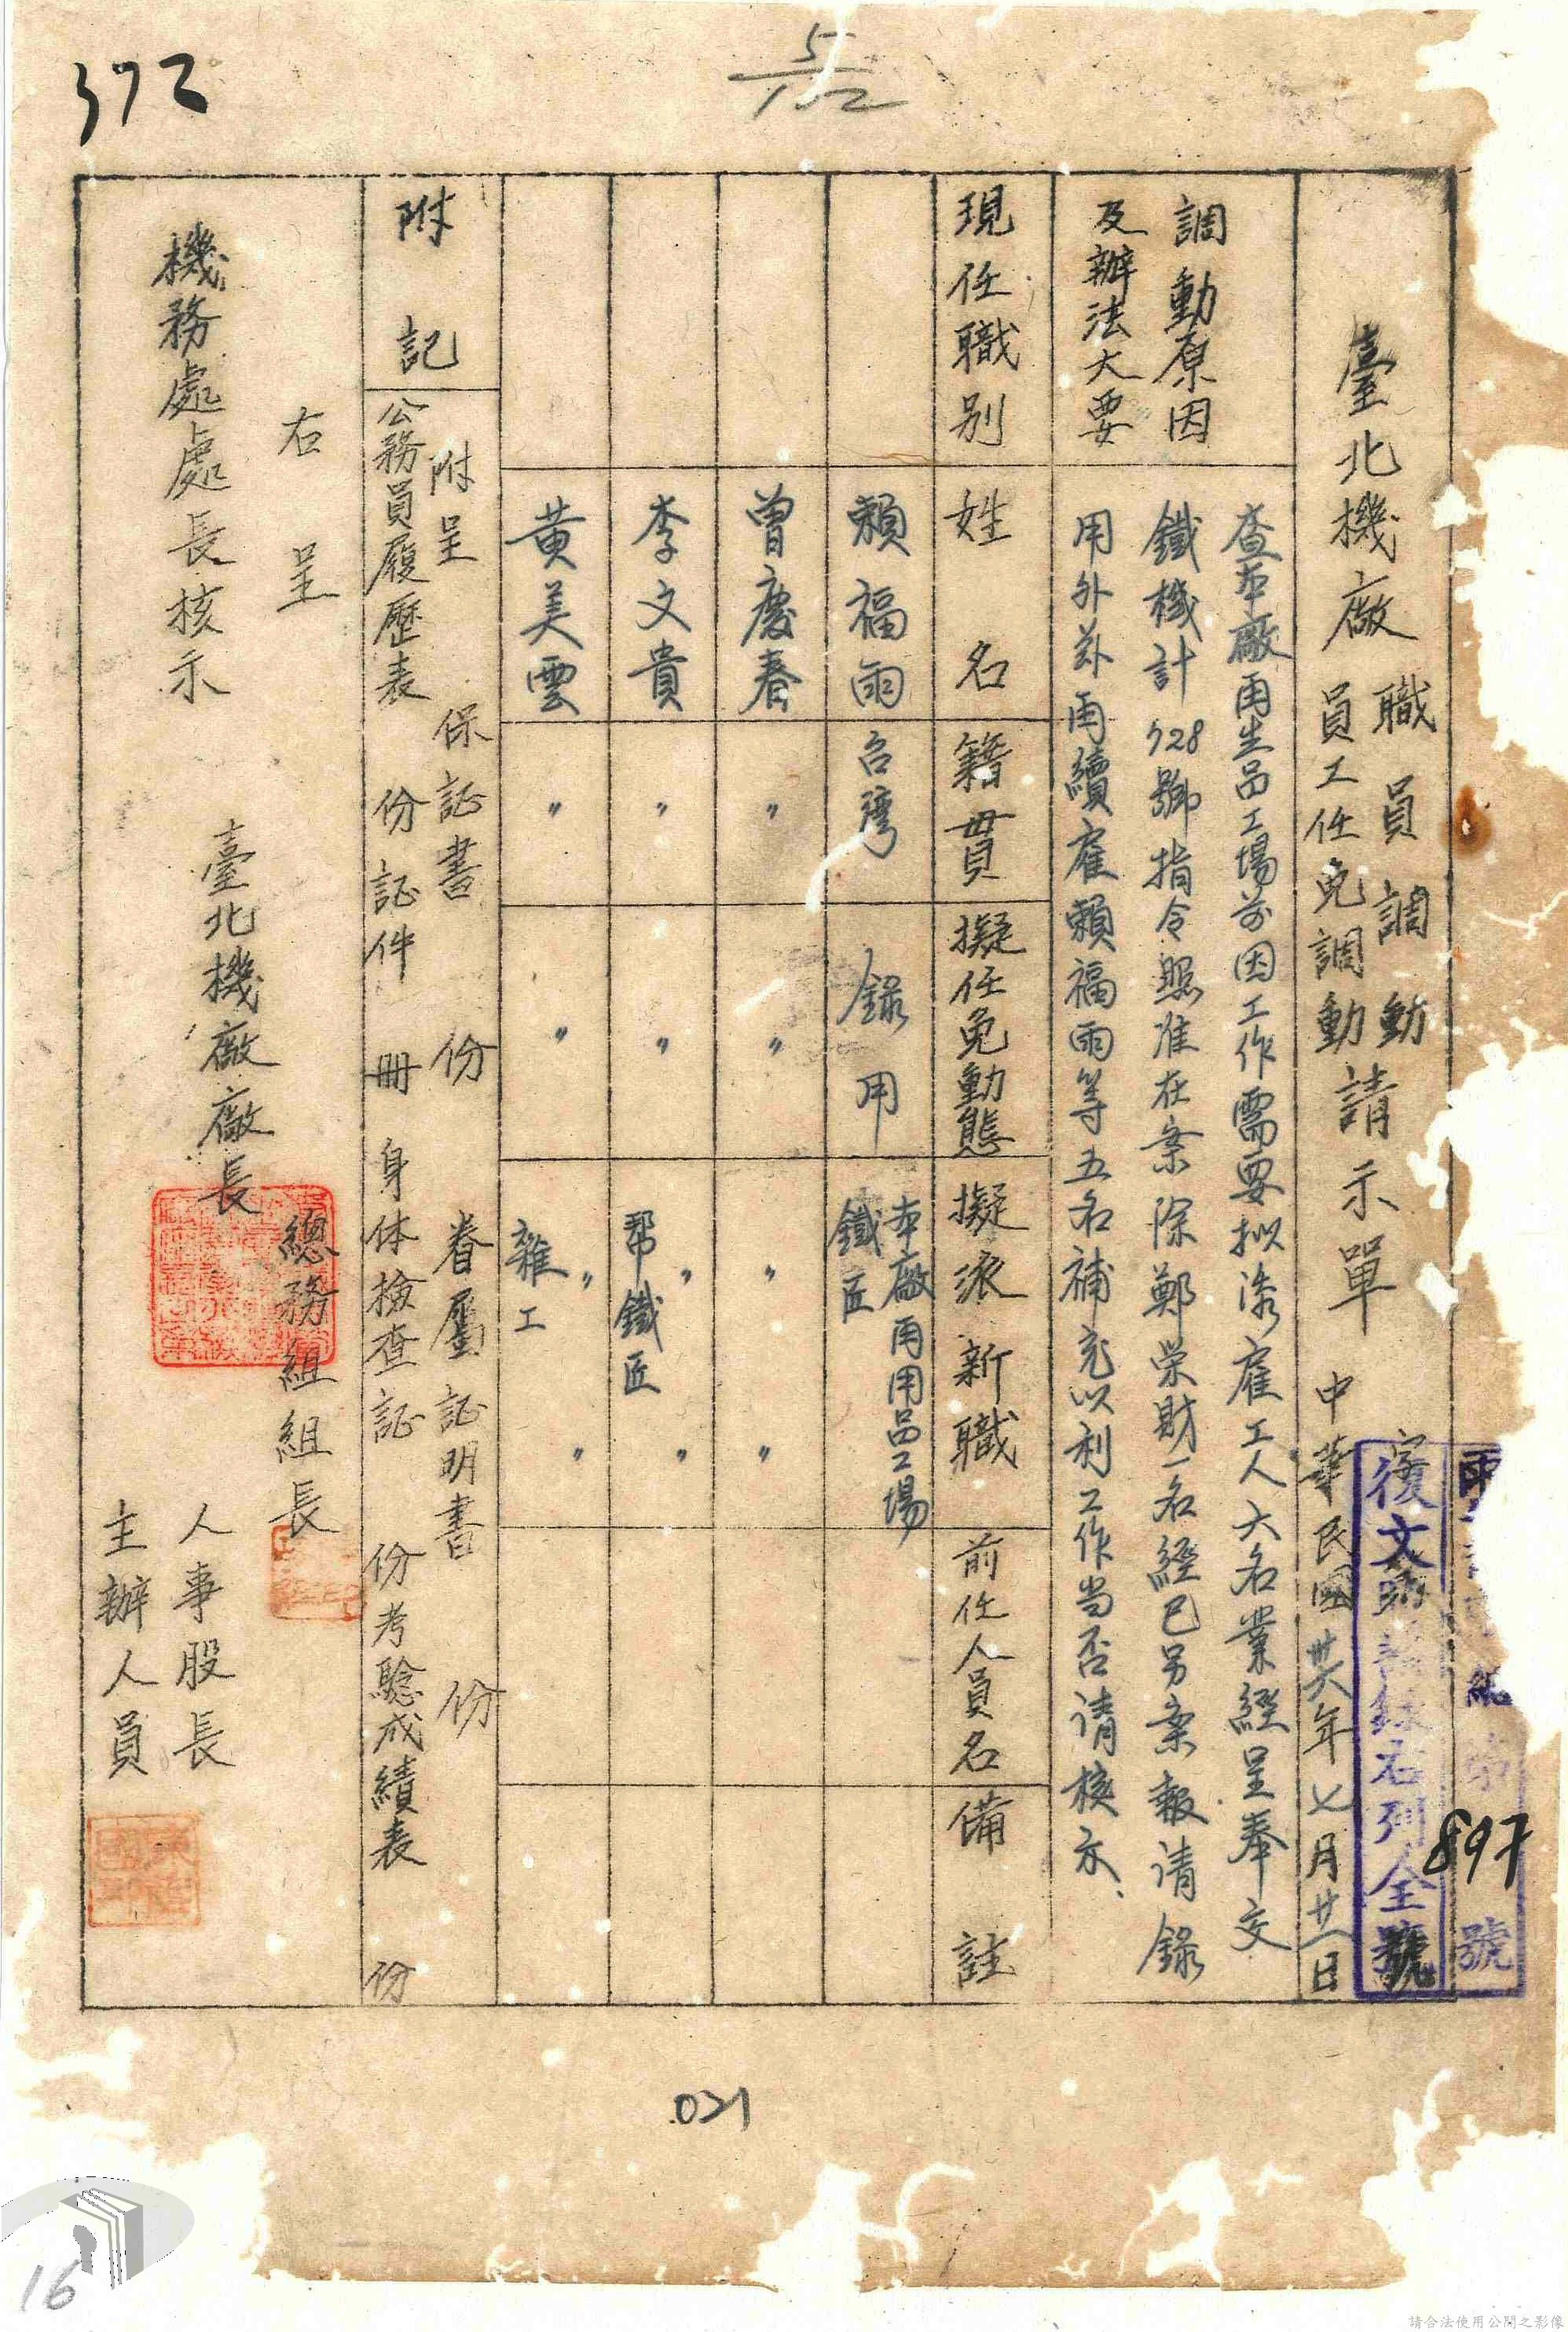 372
5/152
臺北機廠
職員調動
員工任免調動
請示單
中華民國卅六年七月廿一日
字
897
號
復文
錄右列全
號
調動原因
及辦法大要
查本廠甪生品工場前因工作需要拟添雇工人六名業經呈奉交
鐵機計728號指令照准在案除鄭榮財一名經已另案報請錄
用外茲甪續雇賴福雨等五名補充以利工作当否请核示、
現任職別
姓名
籍貫
擬任免動態
擬派新職
前任人員名
備註
賴福雨
台灣
錄用
本廠甪用品工場
鐵匠
曾慶春
〃
〃
〃
〃
李文貴
〃
〃
〃
〃
幫鐵匠
黃美雲
〃
〃
〃
〃
雜工
附記
附呈
保証書 份
眷屬証明書 份
公務員履歷表 份
証件 冊
身体檢查証 份
考驗成績表 份
右呈
機務處處長核示
臺北機廠廠長
總務組組長
人事股長
主辦人員
021
16
請合法使用公開之影像